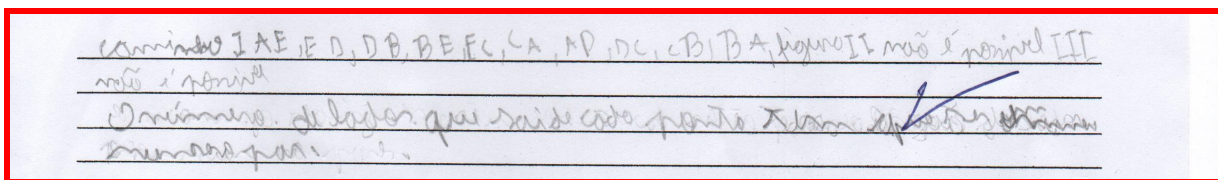 caminho I AE, ED, DB, BE, EC, CA, AD, DC, CB, BA, figura II não é possível III
não é possível
O número de lados que sai de cada ponto tem que ser um
numero par.